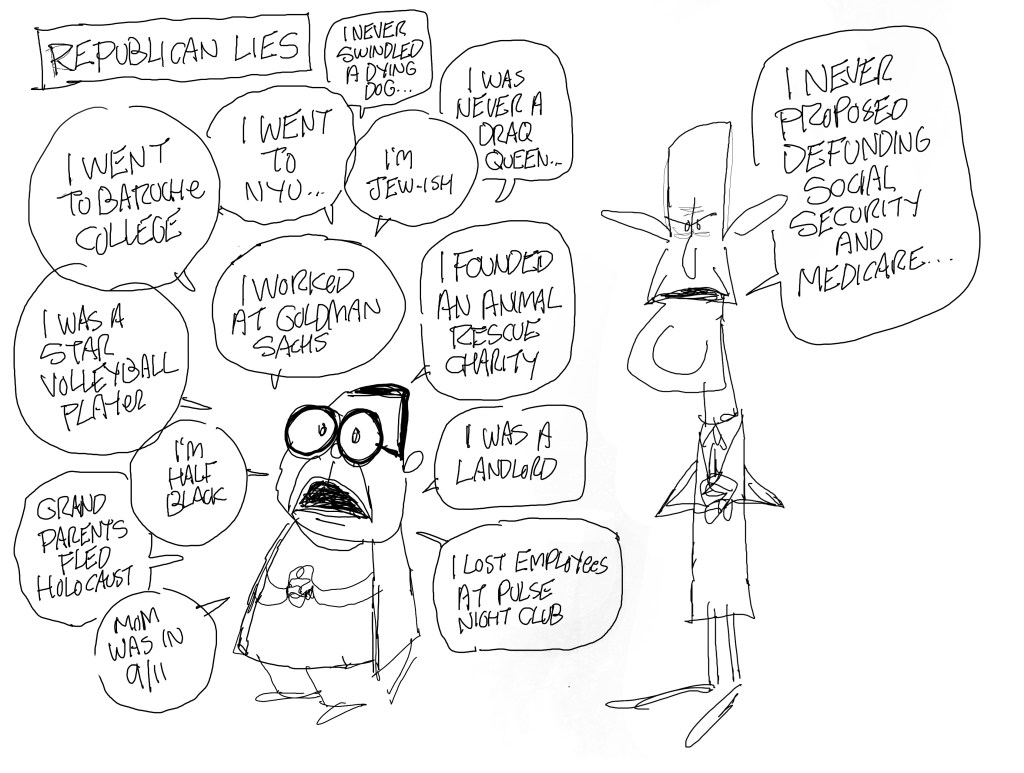 REPUBLICAN LIES
I NEVER
SWINDLED
A DYING
DOG...
I WAS
NEVER A
DRAQ
QUEEN...
I WENT
TO BARUCHE
COLLEGE
I WENT
TO
NYU...
I'M
JEW-ISH
I WORKED
AT GOLDMAN
SACHS
I FOUNDED
AN ANIMAL
RESCUE
CHARITY
I WAS A
STAR
VOLLEYBALL
PLAYER
I'M
HALF
BLACK
I WAS A
LANDLORD
GRAND
PARENTS
FLED
HOLOCAUST
I LOST EMPLOYEES
AT PULSE
NIGHT CLUB
MOM
WAS IN
9/11
I NEVER
PROPOSED
DEFUNDING
SOCIAL
SECURITY
AND
MEDICARE...